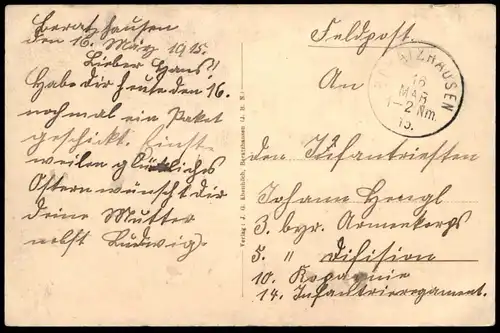 Beratzhausen
den 16. März 1915.
Lieber Hans!
Habe dir heute den 16.
nochmal ein Paket
geschickt. Einst-
weilen glückliches
Ostern wünscht dir
deine Mutter
nebst Ludwig.
Verlag: J. G. Beratzhausen (J. B. N.)
Feldpost.
An
BERATZHAUSEN
16
MAR
1-2 Nm.
15.
den Infantristen
Johann Hengl
3. byr. Armeekorps
5. " Difision
10. Kopanie
14. Infantrieregament.